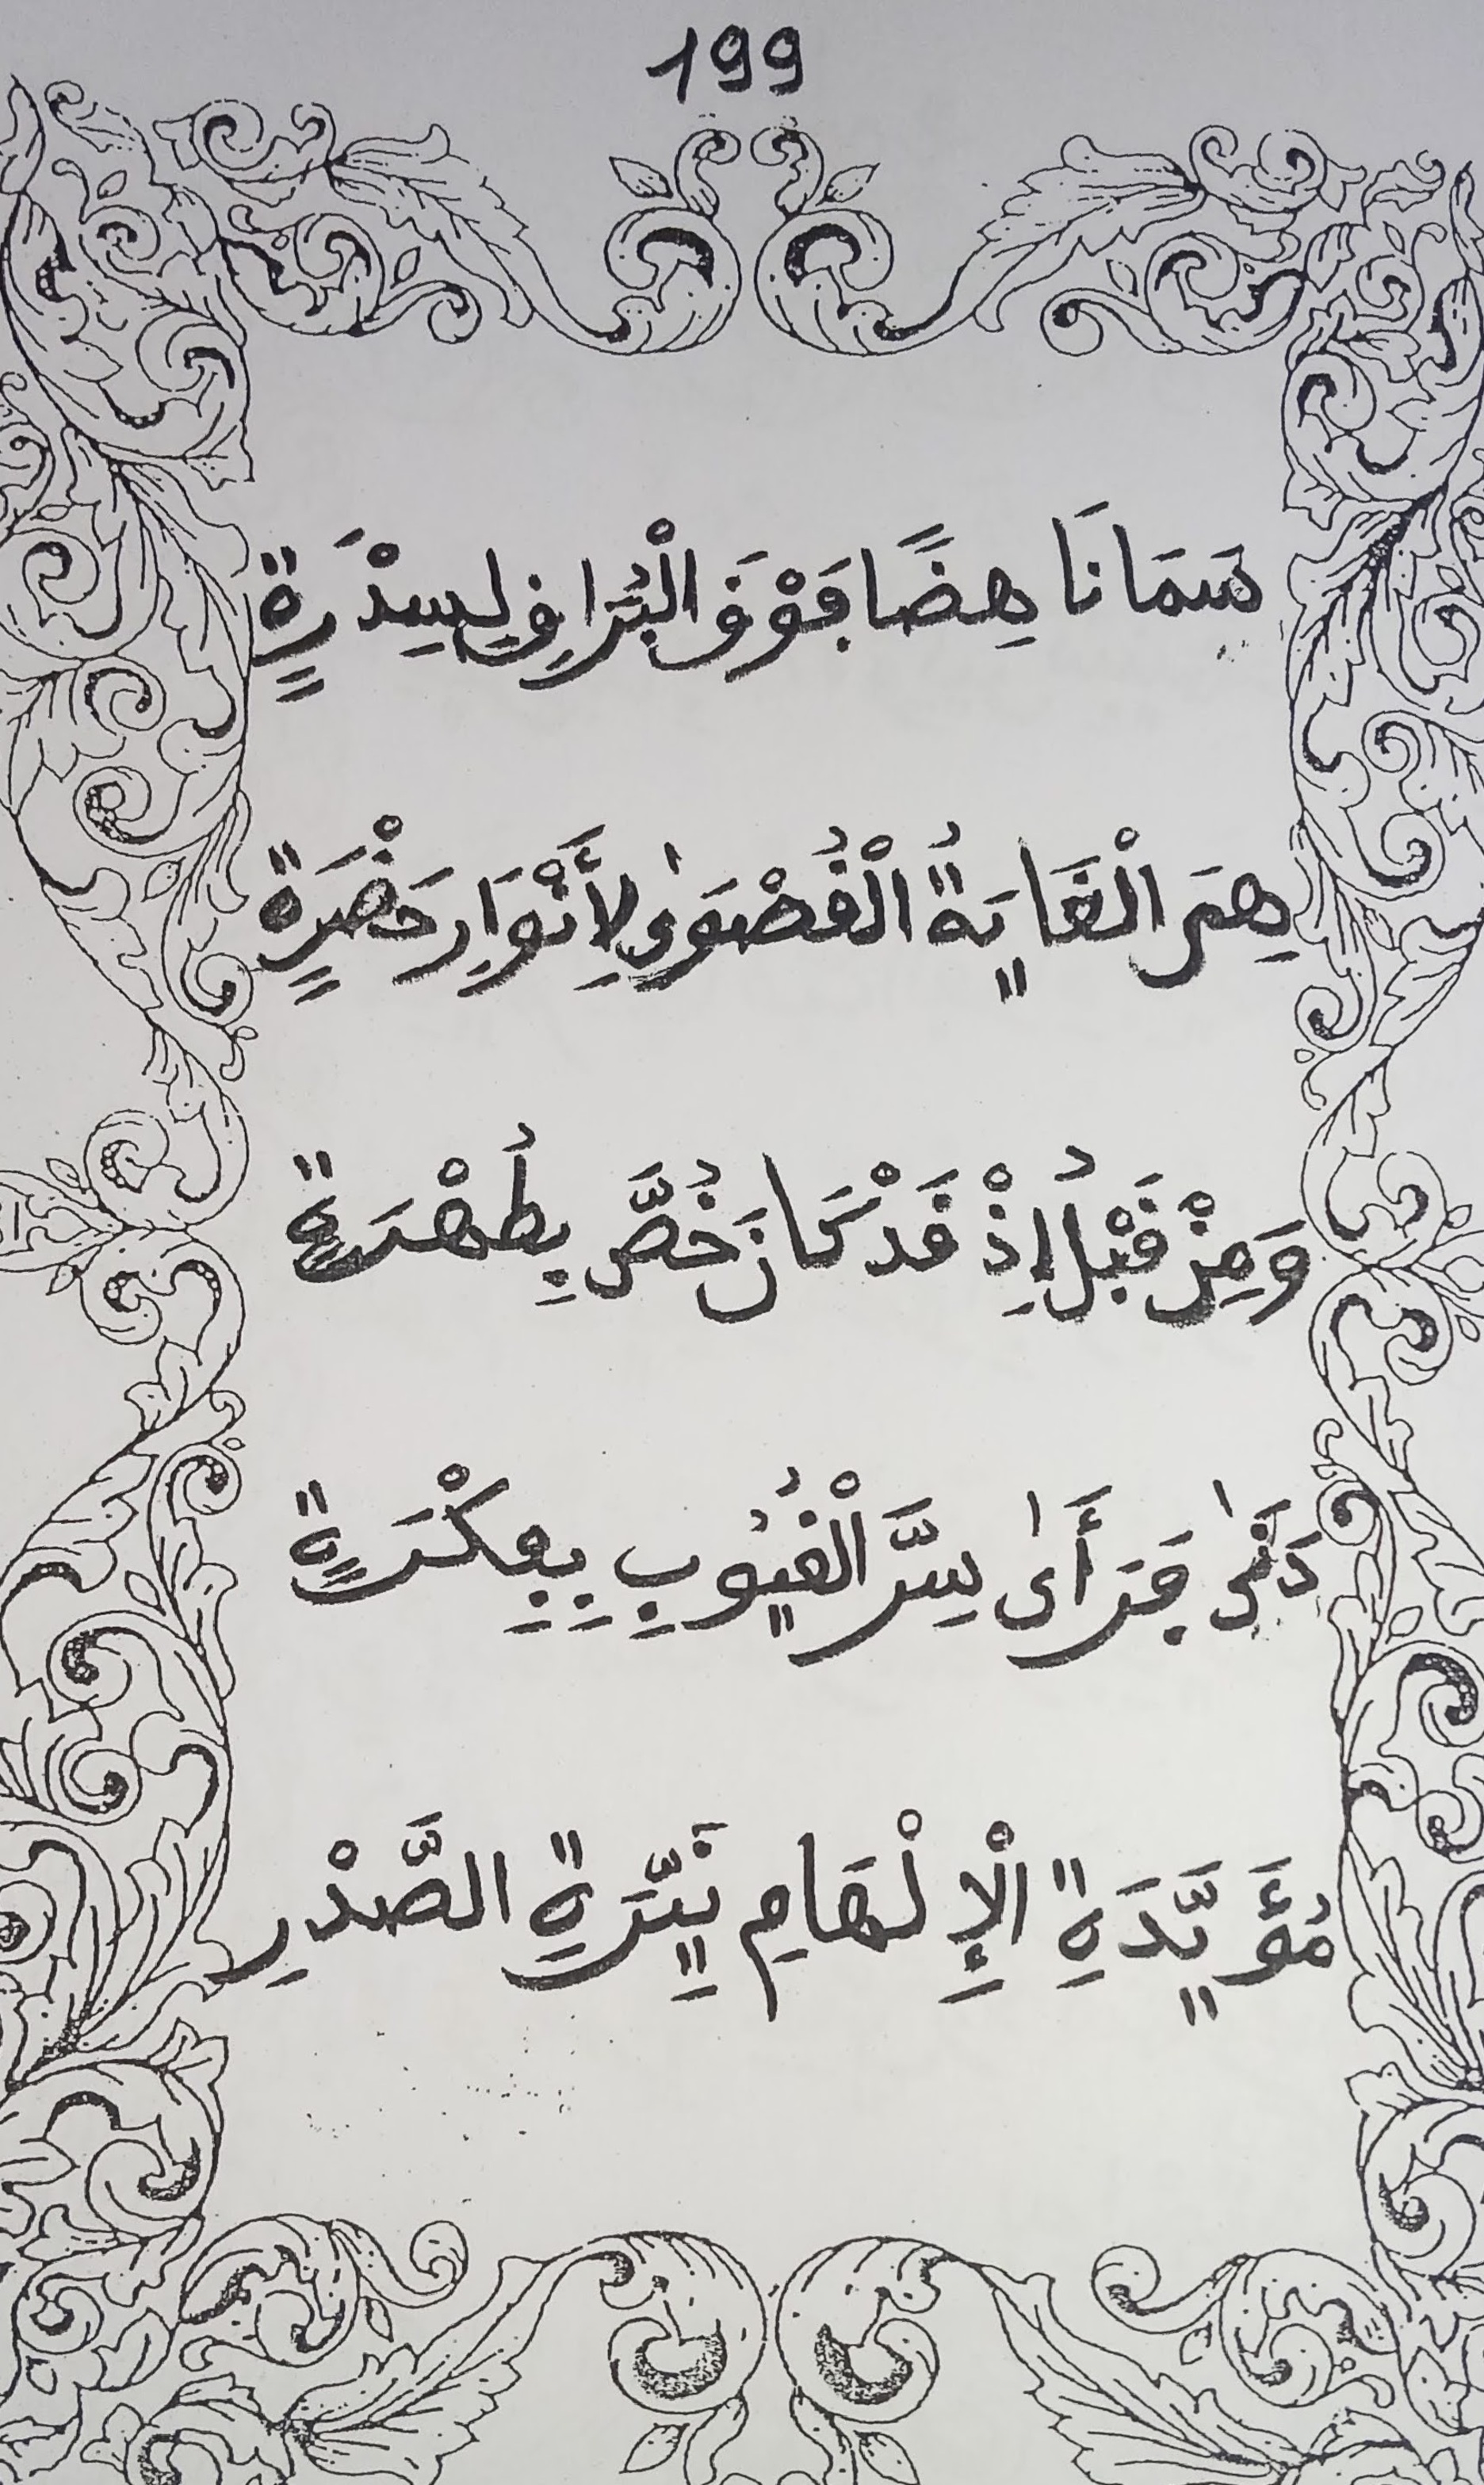 199
سَمَا نَاهِضًا فَوْقَ الْبُرَاقِ لِسِدْرَةٍ
هِيَ الْغَايَةُ الْقُصْوَىٰ لِأَنْوَارِ حَضْرَةٍ
وَمِنْ قَبْلُ إِذْ قَدْ كَانَ خُصَّ بِطُهْرَةٍ
دَنَىٰ فَرَأَىٰ سِرَّ الْغُيُوبِ بِفِكْرَةٍ
مُؤَيَّدَةِ الْإِلْهَامِ نَيِّرَةِ الصَّدْرِ